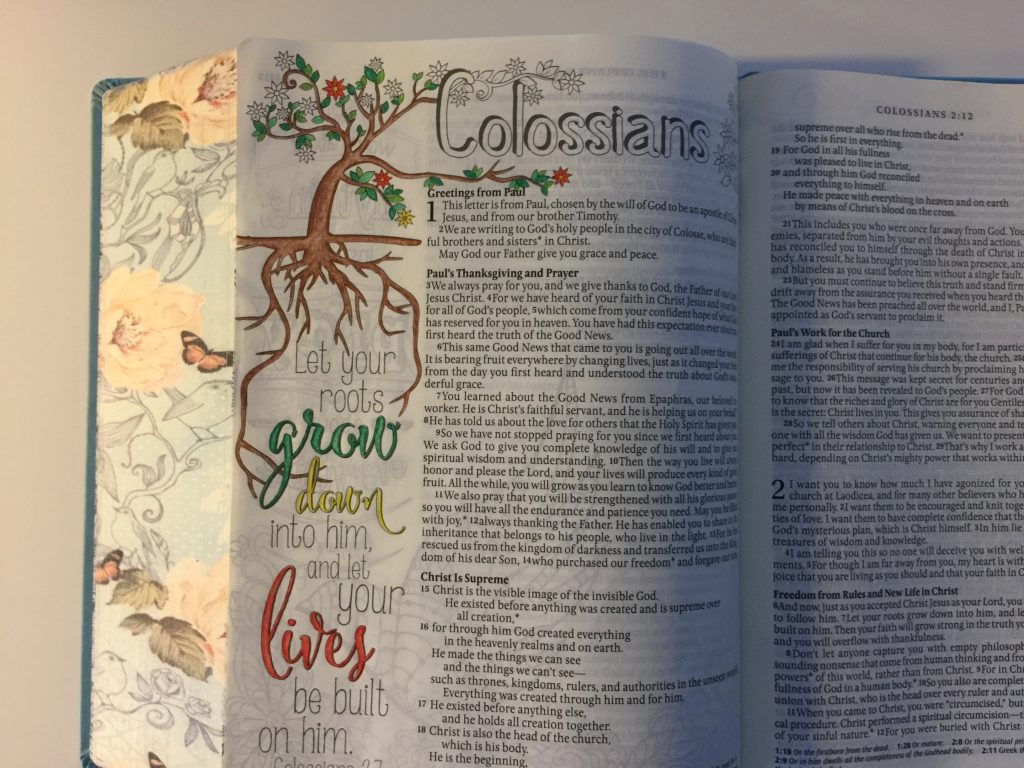 Colossians
Let your
roots
grow
down
into him,
and let
your
lives
be built
on him.
Colossians 2:7
Greetings from Paul
1 This letter is from Paul, chosen by the will of God to be an apostle of Christ
Jesus, and from our brother Timothy.
2We are writing to God's holy people in the city of Colosse, who are faith-
ful brothers and sisters* in Christ.
May God our Father give you grace and peace.
Paul's Thanksgiving and Prayer
3We always pray for you, and we give thanks to God, the Father of our Lord
Jesus Christ. 4For we have heard of your faith in Christ Jesus and your love
for all of God's people, 5which come from your confident hope of what God
has reserved for you in heaven. You have had this expectation ever since you
first heard the truth of the Good News.
6This same Good News that came to you is going out all over the world.
It is bearing fruit everywhere by changing lives, just as it changed your lives
from the day you first heard and understood the truth about God's won-
derful grace.
7You learned about the Good News from Epaphras, our beloved co-
worker. He is Christ's faithful servant, and he is helping us on your behalf.*
8He has told us about the love for others that the Holy Spirit has given you.
9So we have not stopped praying for you since we first heard about you.
We ask God to give you complete knowledge of his will and to give you
spiritual wisdom and understanding. 10Then the way you live will always
honor and please the Lord, and your lives will produce every kind of good
fruit. All the while, you will grow as you learn to know God better and better.
11We also pray that you will be strengthened with all his glorious power
so you will have all the endurance and patience you need. May you be filled
with joy,* 12always thanking the Father. He has enabled you to share in the
inheritance that belongs to his people, who live in the light. 13For he has
rescued us from the kingdom of darkness and transferred us into the King-
dom of his dear Son, 14who purchased our freedom* and forgave our sins.
Christ Is Supreme
15 Christ is the visible image of the invisible God.
He existed before anything was created and is supreme over
all creation,*
16 for through him God created everything
in the heavenly realms and on earth.
He made the things we can see
and the things we can't see—
such as thrones, kingdoms, rulers, and authorities in the unseen world.
Everything was created through him and for him.
17 He existed before anything else,
and he holds all creation together.
18 Christ is also the head of the church,
which is his body.
He is the beginning,
COLOSSIANS 2:12
supreme over all who rise from the dead.*
So he is first in everything.
19 For God in all his fullness
was pleased to live in Christ,
20 and through him God reconciled
everything to himself.
He made peace with everything in heaven and on earth
by means of Christ's blood on the cross.
21This includes you who were once far away from God. You
emies, separated from him by your evil thoughts and actions.
has reconciled you to himself through the death of Christ in
body. As a result, he has brought you into his own presence, and
and blameless as you stand before him without a single fault.
23But you must continue to believe this truth and stand firm
drift away from the assurance you received when you heard the
The Good News has been preached all over the world, and I, Pa
appointed as God's servant to proclaim it.
Paul's Work for the Church
24I am glad when I suffer for you in my body, for I am partici
sufferings of Christ that continue for his body, the church. 25G
me the responsibility of serving his church by proclaiming h
sage to you. 26This message was kept secret for centuries and
past, but now it has been revealed to God's people. 27For God
to know that the riches and glory of Christ are for you Gentiles
is the secret: Christ lives in you. This gives you assurance of sha
28So we tell others about Christ, warning everyone and te
one with all the wisdom God has given us. We want to present
perfect* in their relationship to Christ. 29That's why I work a
hard, depending on Christ's mighty power that works within
2 I want you to know how much I have agonized for yo
church at Laodicea, and for many other believers who h
me personally. 2I want them to be encouraged and knit toge
ties of love. I want them to have complete confidence that th
God's mysterious plan, which is Christ himself. 3In him lie
treasures of wisdom and knowledge.
4I am telling you this so no one will deceive you with wel
ments. 5For though I am far away from you, my heart is with
joice that you are living as you should and that your faith in C
Freedom from Rules and New Life in Christ
6And now, just as you accepted Christ Jesus as your Lord, you
to follow him. 7Let your roots grow down into him, and le
built on him. Then your faith will grow strong in the truth yo
and you will overflow with thankfulness.
8Don't let anyone capture you with empty philosoph
sounding nonsense that come from human thinking and fro
powers* of this world, rather than from Christ. 9For in Ch
fullness of God in a human body.* 10So you also are complet
union with Christ, who is the head over every ruler and aut
11When you came to Christ, you were "circumcised," but
cal procedure. Christ performed a spiritual circumcision—t
of your sinful nature.* 12For you were buried with Christ
1:18 Or the firstborn from the dead. 1:28 Or mature. 2:8 Or the spiritual pri
2:9 Or in him dwells all the completeness of the Godhead bodily. 2:11 Greek t